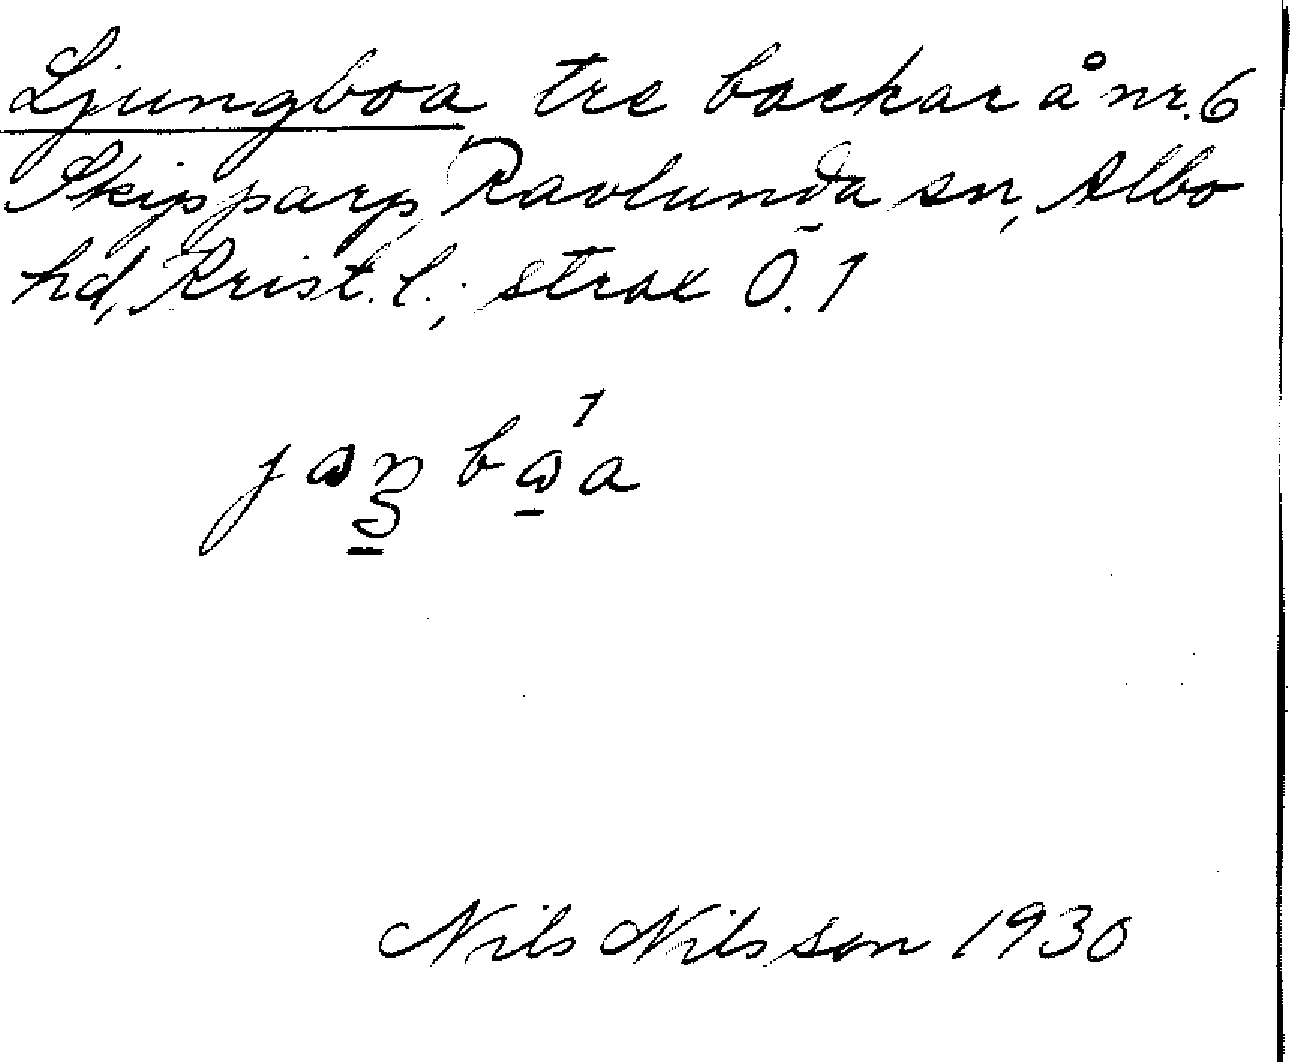 Ljungboa tre backar å nr. 6
Skipparp, Ravlunda sn, Albo
hd, Krist. l.; strax Ö. 1
Nils Nilsson 1930